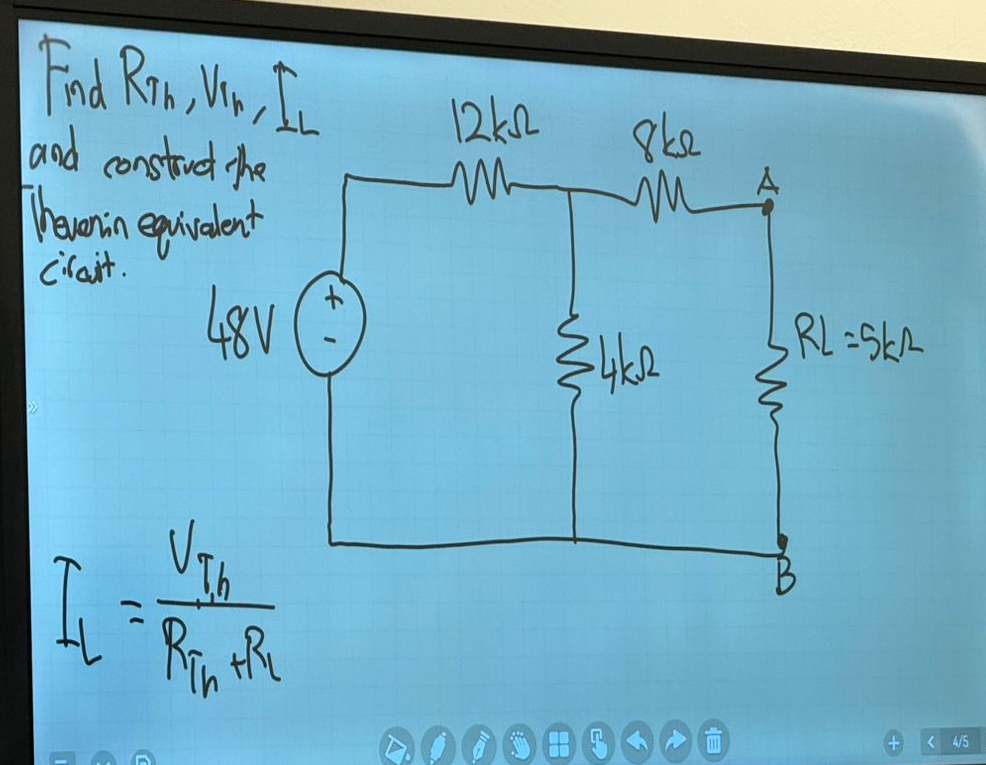 Find RTh, VTh, IL
and construct the
Thevenin equivalent
circuit.
12kΩ
8kΩ
A
48V
+
-
4kΩ
RL=5kΩ
B
IL = VTh
RTh+RL
4/5